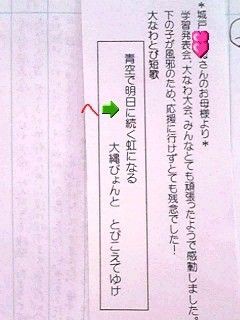 ＊城戸さんのお母様より＊
学習発表会、大なわ大会、みんなとても頑張ったようで感動しました。
下の子が風邪のため、応援に行けずとても残念でした！
大なわとび短歌
青空で明日に続く虹になる
へ
大縄ぴょんと　とびこえてゆけ